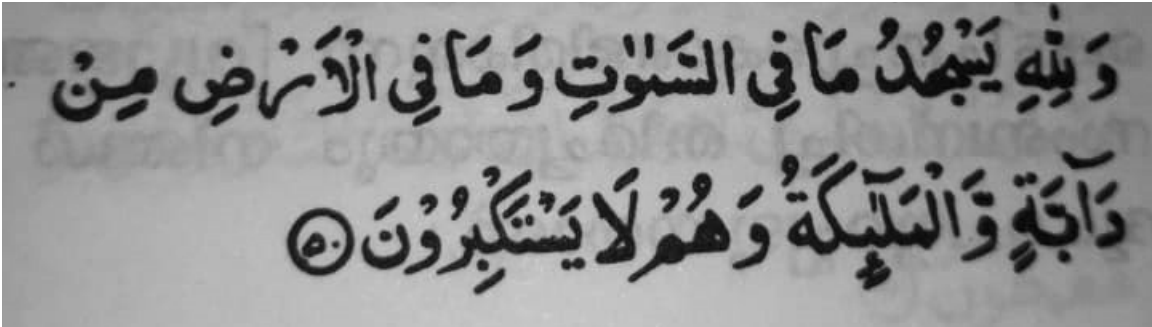 وَ لِلّٰهِ يَسْجُدُ مَا فِي السَّمٰوٰتِ وَ مَا فِي الْاَرْضِ مِنْ
دَآبَّةٍ وَّ الْمَلٰٓىِٕكَةُ وَ هُمْ لَا يَسْتَكْبِرُوْنَ ۝٥٠